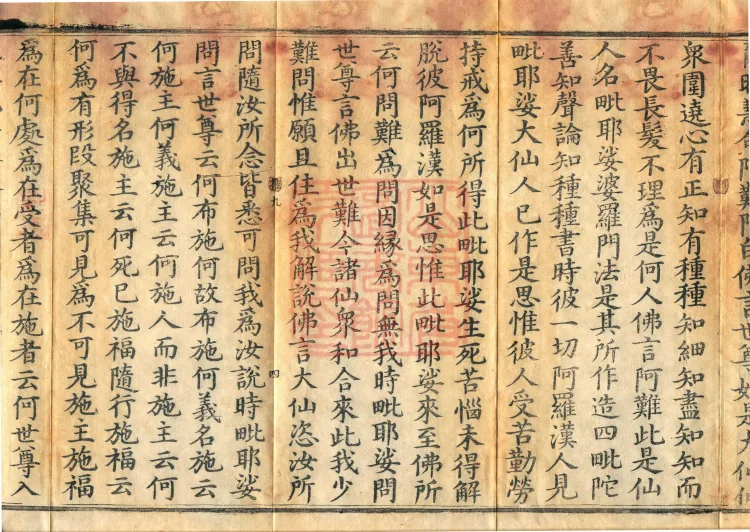 衆圍遶心有正知有種種知細知盡知知而
不畏長髮不理爲是何人佛言阿難此是仙
人名毗耶娑婆羅門法是其所作造四毗陀
善知聲論知種種書時彼一切阿羅漢人見
毗耶娑大仙人已作是思惟彼人受苦勤勞
持戒爲何所得此毗耶娑生死苦惱未得解
脫彼阿羅漢如是思惟此毗耶娑來至佛所
云何問難爲問因緣爲問無我時毗耶娑問
世尊言佛出世難今諸仙衆和合來此我少
難問惟願且住爲我解說佛言大仙恣汝所
九 四
問隨汝所念皆悉可問我爲汝說時毗耶娑
問言世尊云何布施何故布施何義名施云
何施主何義施主云何施人而非施主云何
不與得名施主云何死已施福隨行施福云
何爲有形段聚集可見爲不可見施主施福
爲在何處爲在受者爲在施者云何世尊入